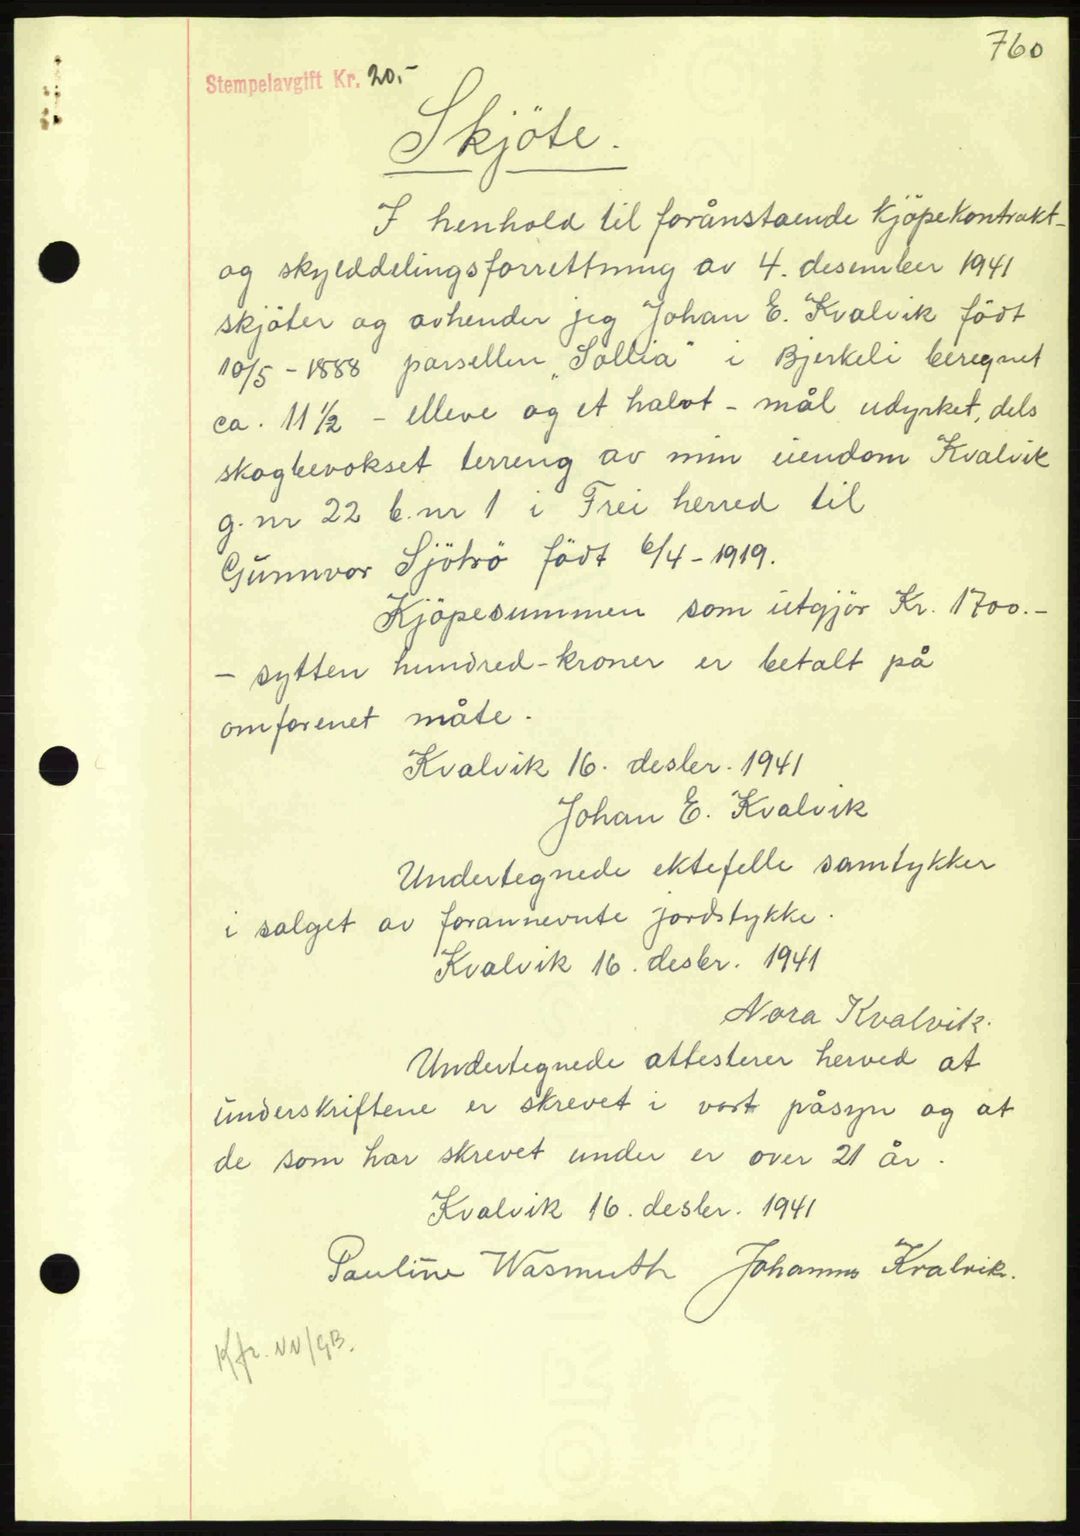 760
Stempelavgift Kr. 20.-
Skjöte.
I henhold til forånstaende Kjöpekontrakt-
og skylddelingsforrettning av 4. desember 1941
skjöter og avhender jeg Johan E. Kvalvik födt
10/5 - 1888 parsellen „Sollia" i Bjerkeli beregnet
ca. 11 1/2 - elleve og et halvt - mål udyrket, dels
skogbevokset terreng av min eiendom Kvalvik
g. nr 22 b. nr 1 i Frei herred til
Gunnvor Sjötrö födt 6/4 - 1919.
Kjöpesummen som utgjör Kr. 1700.-
- sytten hundred-kroner er betalt på
omforenet måte.
Kvalvik 16. desbr. 1941
Johan E. Kvalvik
Undertegnede ektefelle samtykker
i salget av forannevnte jordstykke.
Kvalvik 16. desbr. 1941
Nora Kvalvik.
Undertegnede attesterer herved at
underskriftene er skrevet i vort påsyn og at
de som har skrevet under er over 21 år.
Kvalvik 16. desbr. 1941
Pauline Wasmuth Johannes Kvalvik.
Kfr. NN/GB.